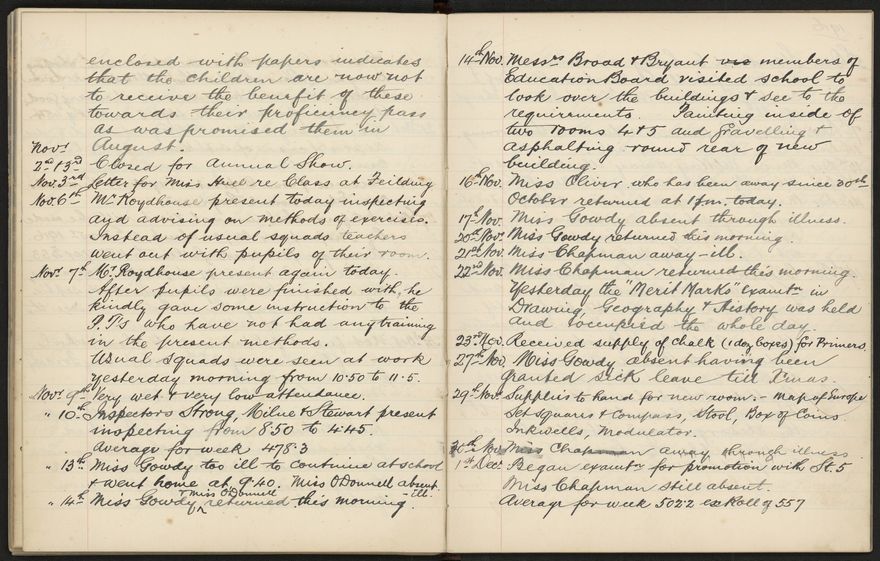 enclosed with papers indicates
that the children are now not
to receive the benefit of these
towards their proficiency pass
as was promised them in
August.
Novr.
2nd & 3rd Closed for Annual Show.
Nov. 3rd Letter for Miss Huie re Class at Feilding
Nov. 6th Mr. Roydhouse present today inspecting
and advising on methods of exercises.
Instead of usual squads teachers
went out with pupils of their room.
Novr. 7th Mr. Roydhouse present again today.
After pupils were finished with, he
kindly gave some instruction to the
P.T's who have not had any training
in the present methods.
Usual squads were seen at work
yesterday morning from 10.50 to 11.5.
Novr. 9th Very wet & very low attendance.
" 10th Inspectors Strong, Milne & Stewart present
inspecting from 8.50 to 4.45.
Average for week 478.3
" 13th Miss Gowdy too ill to continue at school
& went home at 9.40. Miss O'Donnell absent
- ill.
" 14th Miss Gowdy & Miss O'Donnell returned this morning.
14th Nov. Messrs Broad & Bryant members of
Education Board visited school to
look over the buildings & see to the
requirements. Painting inside of
two rooms 4 & 5 and gravelling &
asphalting round rear of new
building.
16th Nov. Miss Oliver who has been away since 30th
October returned at 1 pm. today.
17th Nov. Miss Gowdy absent through illness.
20th Nov. Miss Gowdy returned this morning.
21st Nov. Miss Chapman away - ill.
22nd Nov. Miss Chapman returned this morning.
Yesterday the "Merit Marks" examtn in
Drawing, Geography & History was held
and occupied the whole day.
23rd Nov. Received supply of Chalk (1 doz boxes) for Primers.
27th Nov Miss Gowdy absent having been
granted sick leave till Xmas.
29th Nov. Supplies to hand for new room:- Map of Europe
Set Squares & Compass, Stool, Box of Coins
Inkwells, Modulator.
30th Nov Miss Chapman away through illness
1st Dec. Began examtn for promotion with St. 5
Miss Chapman still absent.
Average for week 502.2 ex Roll of 557